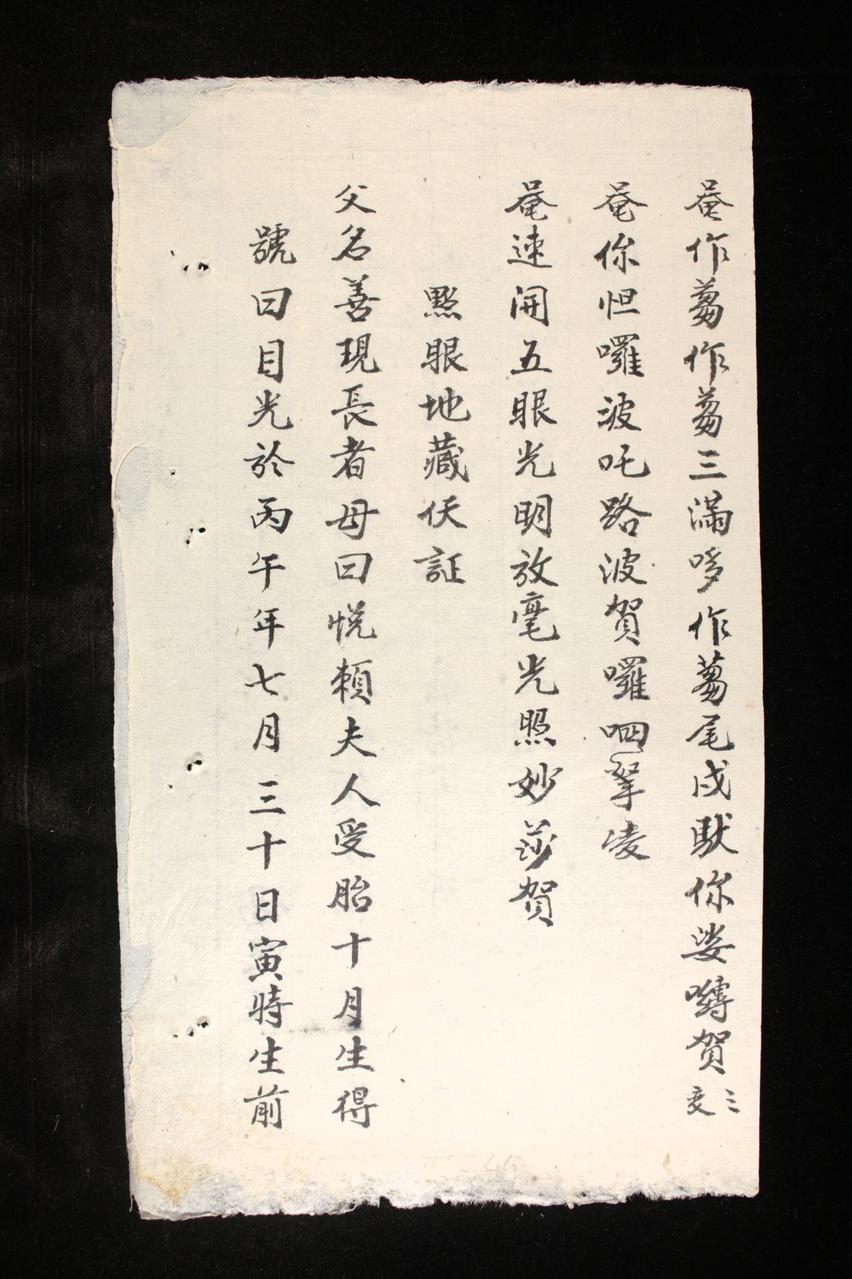 菴作蒭作蒭三滿哆作蒭尾戍馱你娑嚩賀三変
菴你怛囉波吒路波賀囉呬拏凌
菴速開五眼光明放毫光照妙莎賀
㸃眼地藏伏証
父名善現長者母曰悅賴夫人受胎十月生得
號曰目光於丙午年七月三十日寅時生前